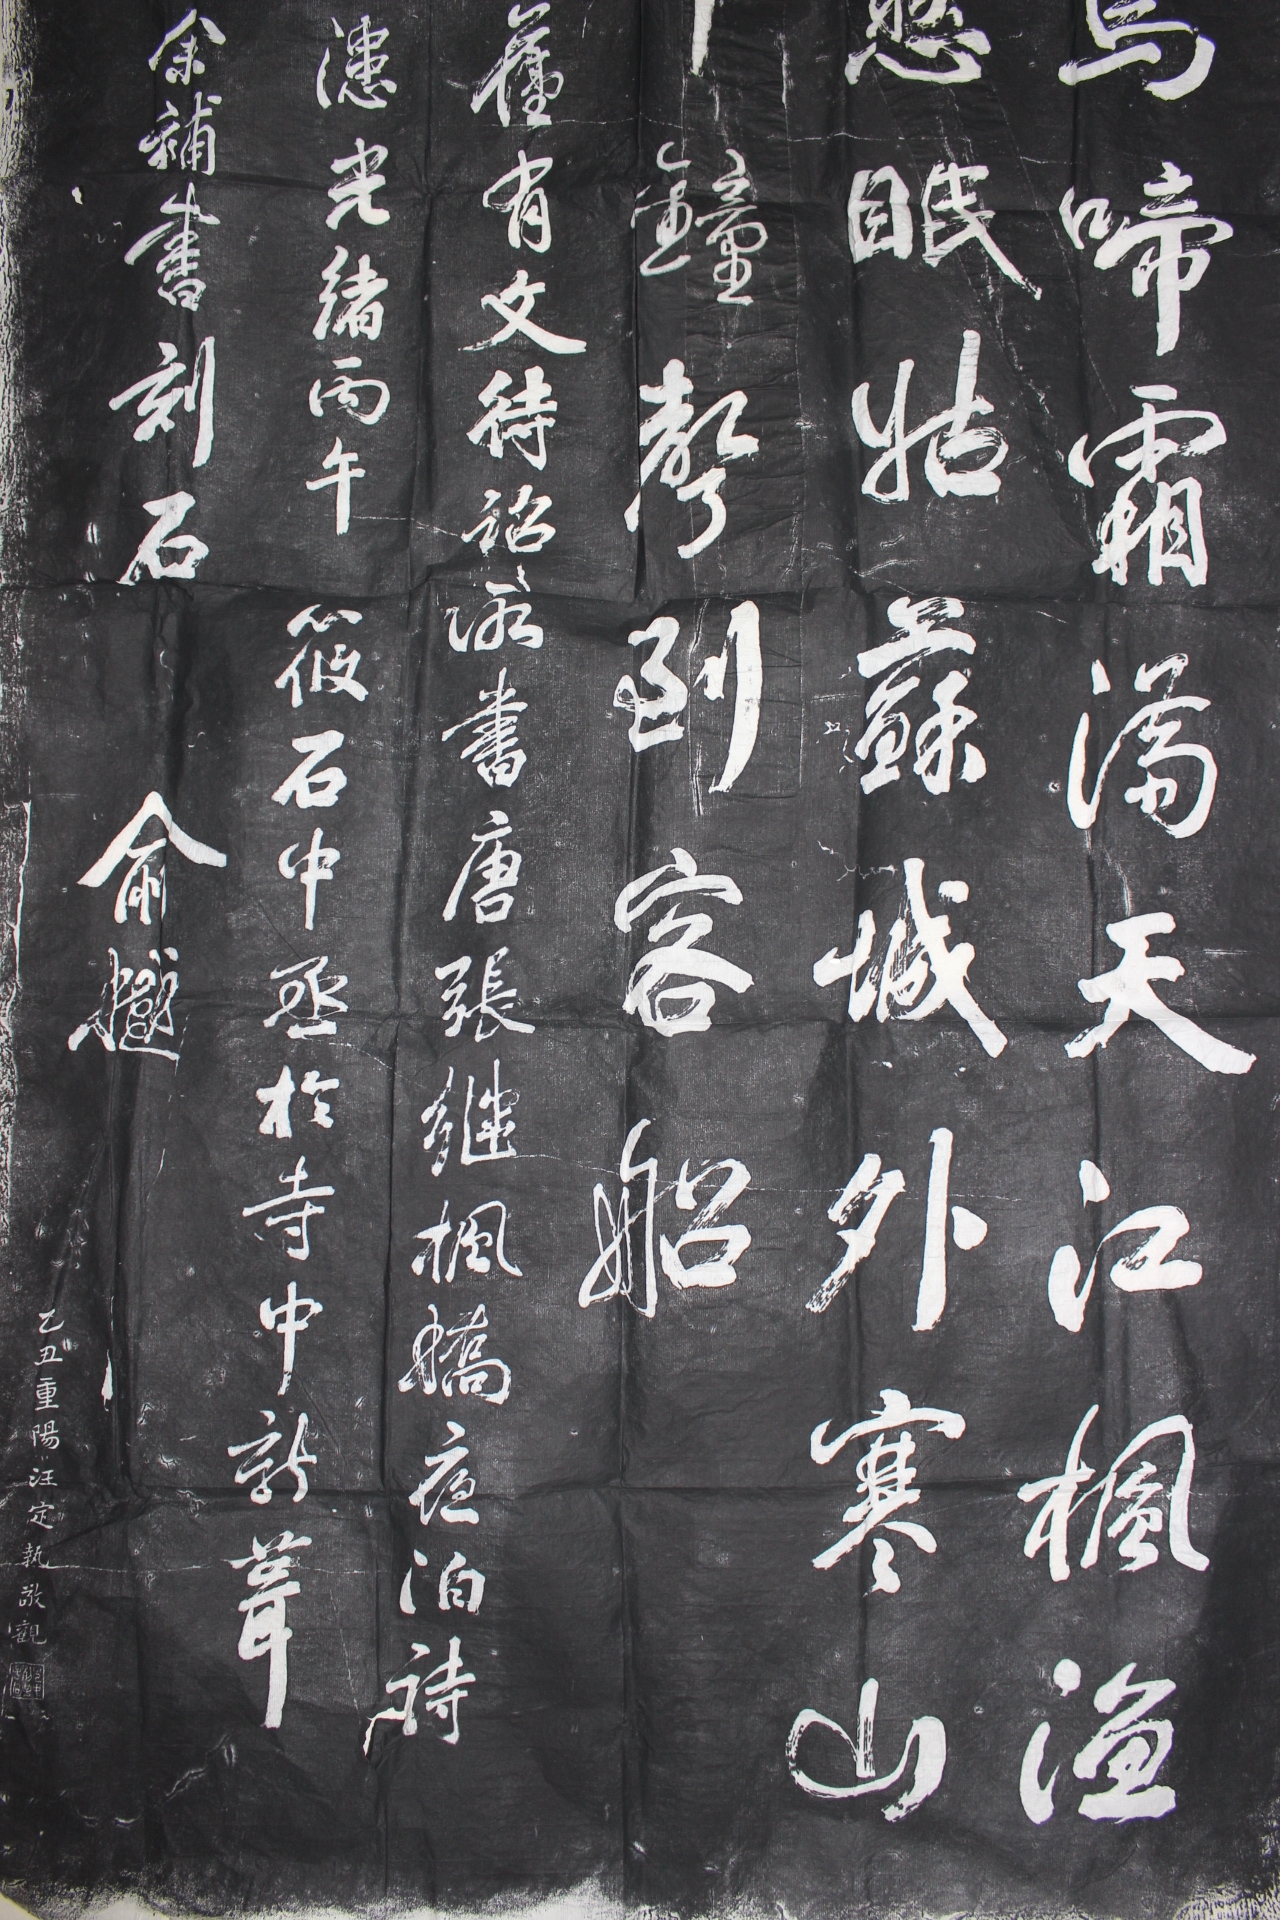 烏啼霜滿天江楓漁
愁眠姑蘇城外寒山
鐘聲到客船
舊有文待詔所書唐張繼楓橋夜泊詩
漶光緒丙午
筱石中丞於寺中新葺
余補書刻石
俞樾
乙丑重陽汪定執敬觀